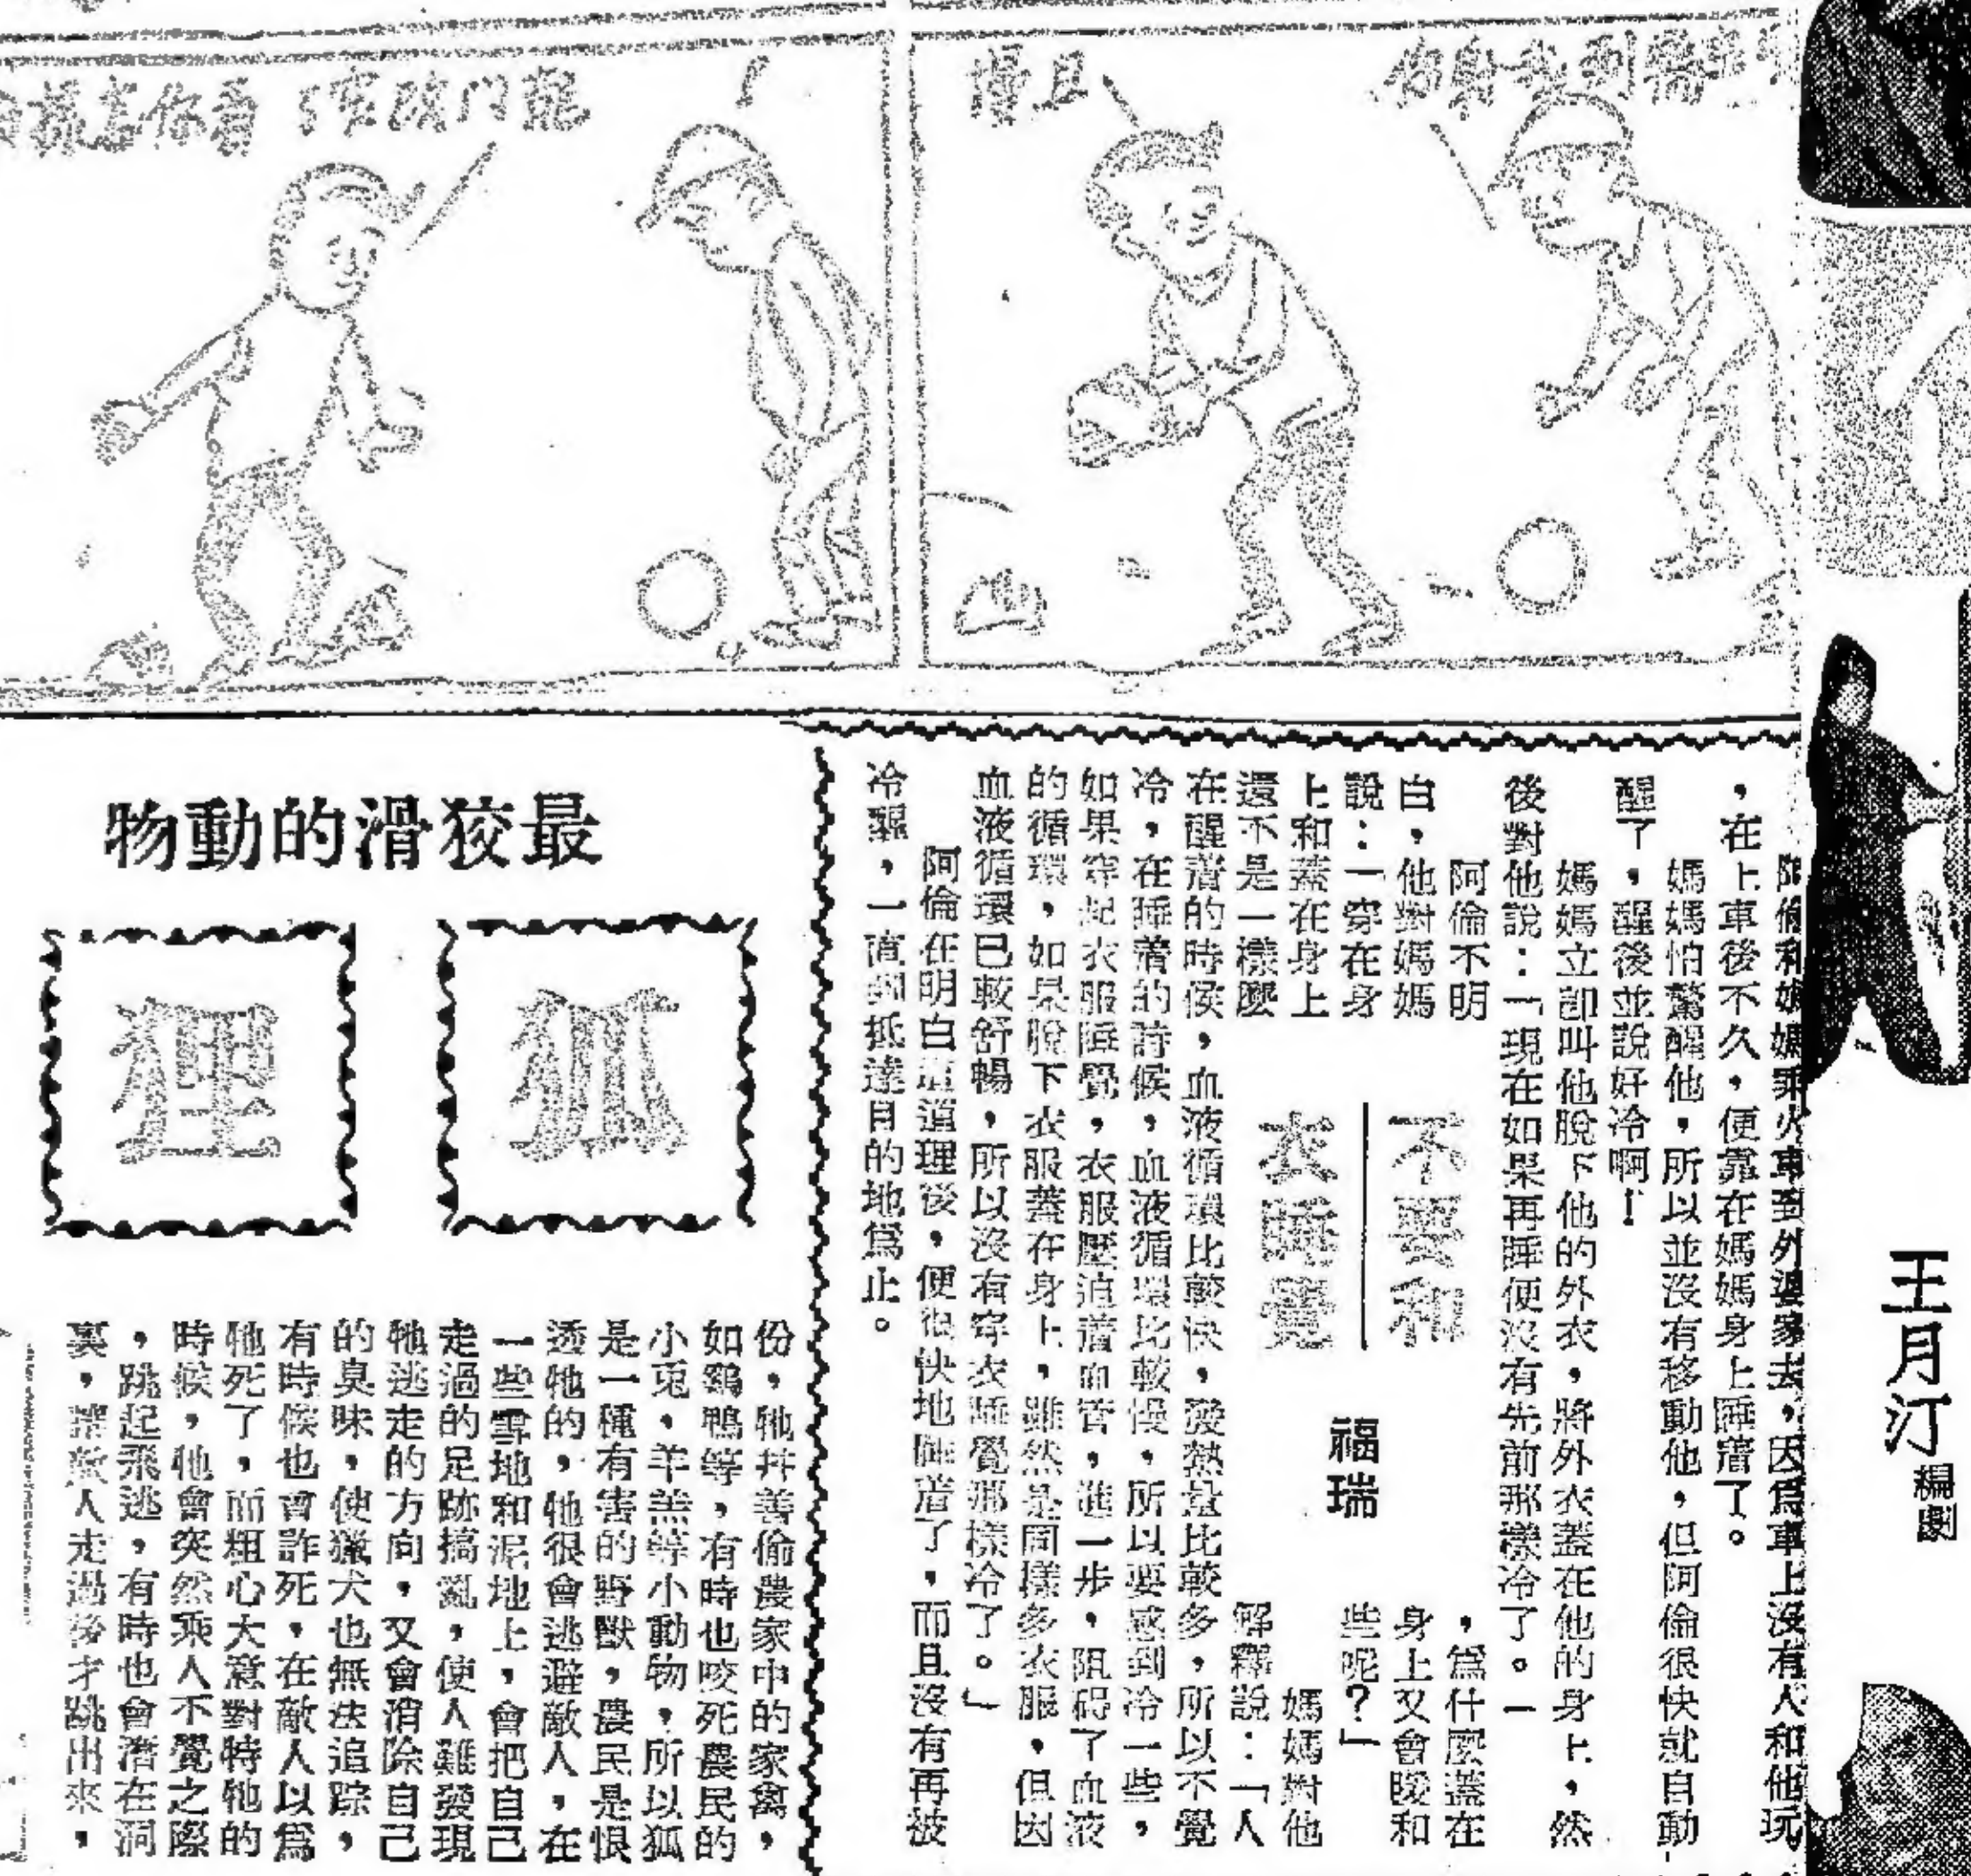 王月汀 編劇
不要和
衣睡覺
福瑞
阿倫和媽媽乘火車到外婆家去，因爲車上沒有人和他玩
，在上車後不久，便靠在媽媽身上睡着了。
媽媽怕驚醒他，所以並沒有移動他，但阿倫很快就自動
醒了，醒後並說好冷啊！
媽媽立卽叫他脫下他的外衣，將外衣蓋在他的身上，然
後對他說：「現在如果再睡便沒有先前那樣冷了。」
阿倫不明
白，他對媽媽
說：「穿在身
上和蓋在身上
還不是一樣麼
，爲什麼蓋在
身上又會暖和
些呢？」
媽媽對他
解釋說：「人
在醒着的時候，血液循環比較快，發熱量比較多，所以不覺
冷，在睡着的時候，血液循環比較慢，所以要感到冷一些，
如果穿起衣服睡覺，衣服壓迫着血管，進一步，阻碍了血液
的循環，如果脫下衣服蓋在身上，雖然是同樣多衣服，但因
血液循環已較舒暢，所以沒有穿衣睡覺那樣冷了。」
阿倫在明白這道理後，便很快地睡着了，而且沒有再被
冷醒，一直到抵達目的地爲止。
最狡滑的動物
狐狸
份，牠幷善偷農家中的家禽，
如鷄鴨等，有時也咬死農民的
小兎，羊羔等小動物，所以狐
是一種有害的野獸，農民是恨
透牠的，牠很會逃避敵人，在
一些雪地和泥地上，會把自己
走過的足跡搞亂，使人難發現
牠逃走的方向，又會消除自己
的臭味，使獵犬也無法追踪，
有時候也會詐死，在敵人以爲
牠死了，而粗心大意對待牠的
時候，牠會突然乘人不覺之際
，跳起飛逃，有時也會潛在洞
裏，讓敵人走過後才跳出來，